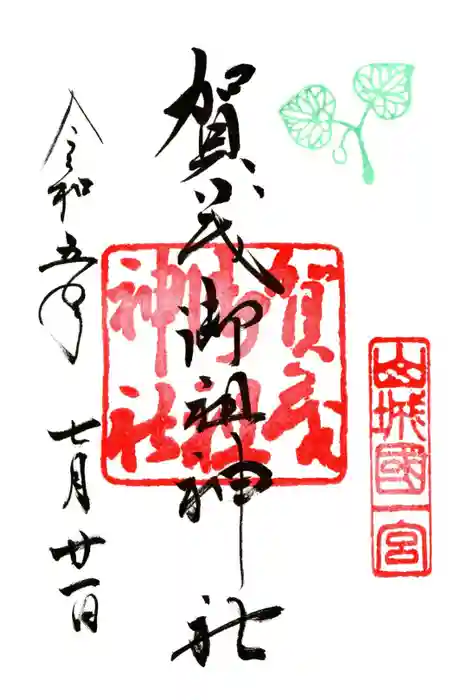 山城國一宮
賀茂御祖神社
賀茂
御祖
神社
令和五年
七月廿一日